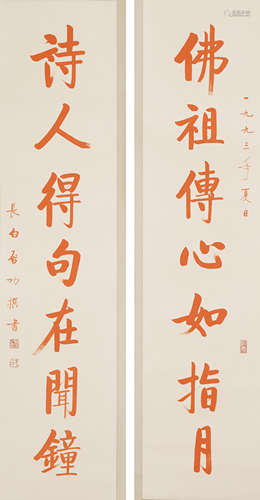 佛祖傳心如指月
一九九三年夏日
詩人得句在聞鐘
長白啟功撰書